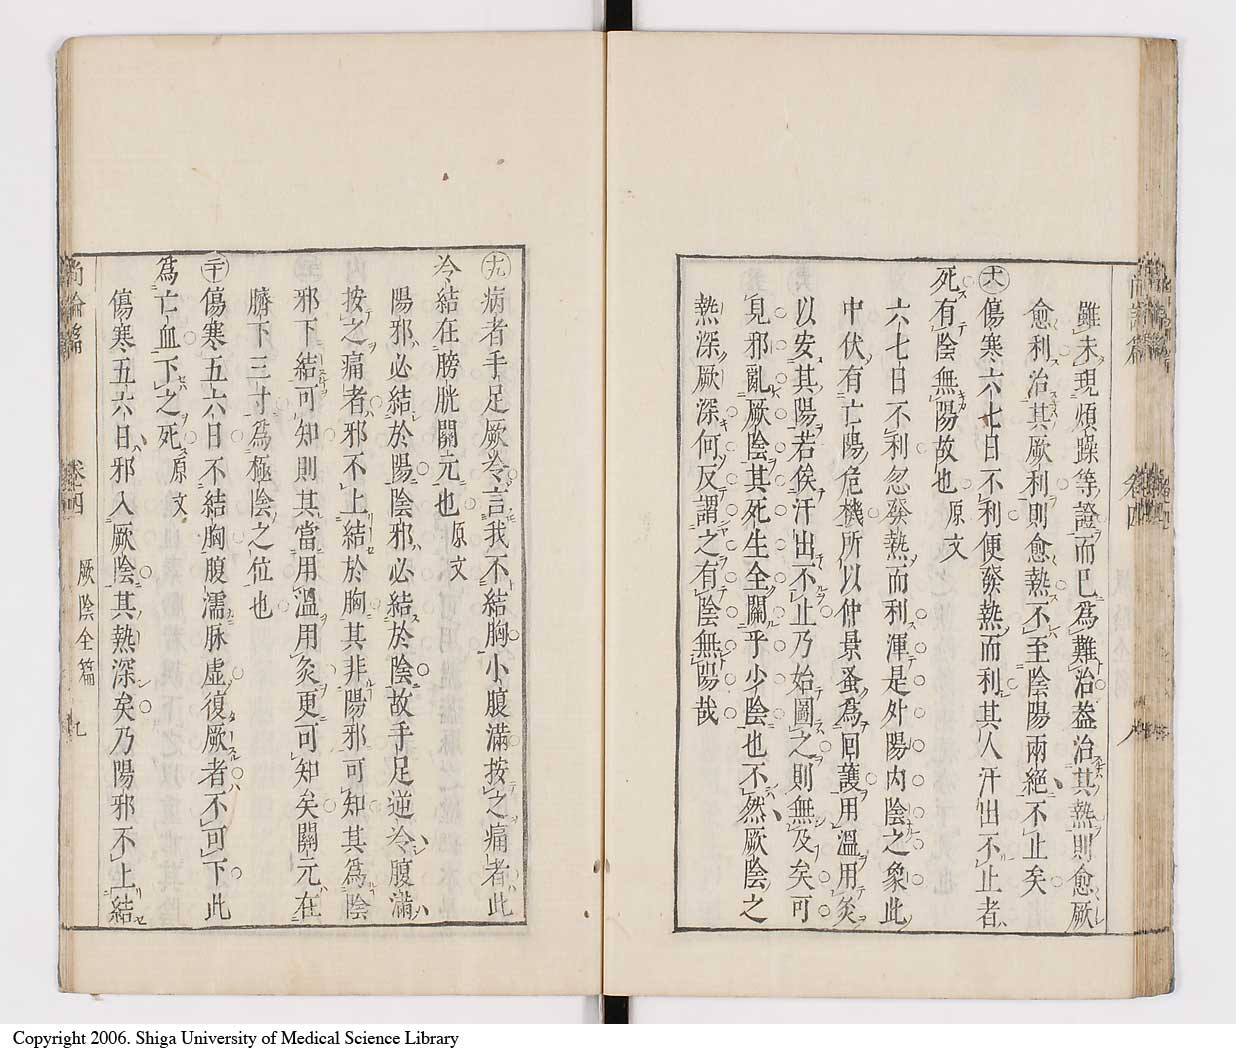 雖未現煩躁等證而已爲難治葢治其熱則愈厥
愈利治其厥利則愈熱不至陰陽兩絕不止矣
傷寒六七日不利便發熱而利其人汗出不止者
死有陰無陽故也 原文
六七日不利忽發熱而利渾是外陽內陰之象此
中伏有亡陽危機所以仲景蚤爲回護用溫用灸
以安其陽若俟汗出不止乃始圖之則無及矣可
見邪亂厥陰其死生全關乎少陰也不然厥陰之
熱深厥深何反謂之有陰無陽哉
十九 病者手足厥冷言我不結胸小腹滿按之痛者此
冷結在膀胱關元也 原文
陽邪必結於陽陰邪必結於陰故手足逆冷腹滿
按之痛者邪不上結於胸其非陽邪可知其爲陰
邪下結可知則其當用溫用灸更可知矣關元在
臍下三寸爲極陰之位也
二十 傷寒五六日不結胸腹濡脉虛復厥者不可下此
爲亡血下之死 原文
傷寒五六日邪入厥陰其熱深矣乃陽邪不上結
尚論篇 卷四 厥陰全篇 九
Copyright 2006. Shiga University of Medical Science Library